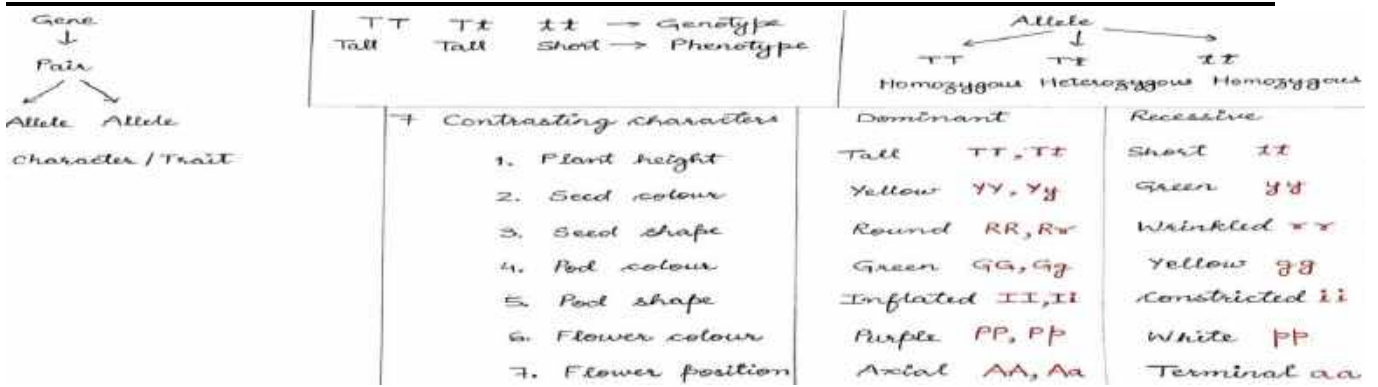 Gene
↓
Pair
Allele Allele
Character/Trait
TT Tt tt → Genotype
Tall Tall Short → Phenotype
Allele
TT Tt tt
Homozygous Heterozygous Homozygous
7 Contrasting characters Dominant Recessive
1. Plant height Tall TT, Tt Short tt
2. Seed colour Yellow YY, Yy Green yy
3. Seed shape Round RR, Rr Wrinkled rr
4. Pod colour Green GG, Gg Yellow gg
5. Pod shape Inflated II, Ii Constricted ii
6. Flower colour Purple PP, Pp White pp
7. Flower position Axial AA, Aa Terminal aa